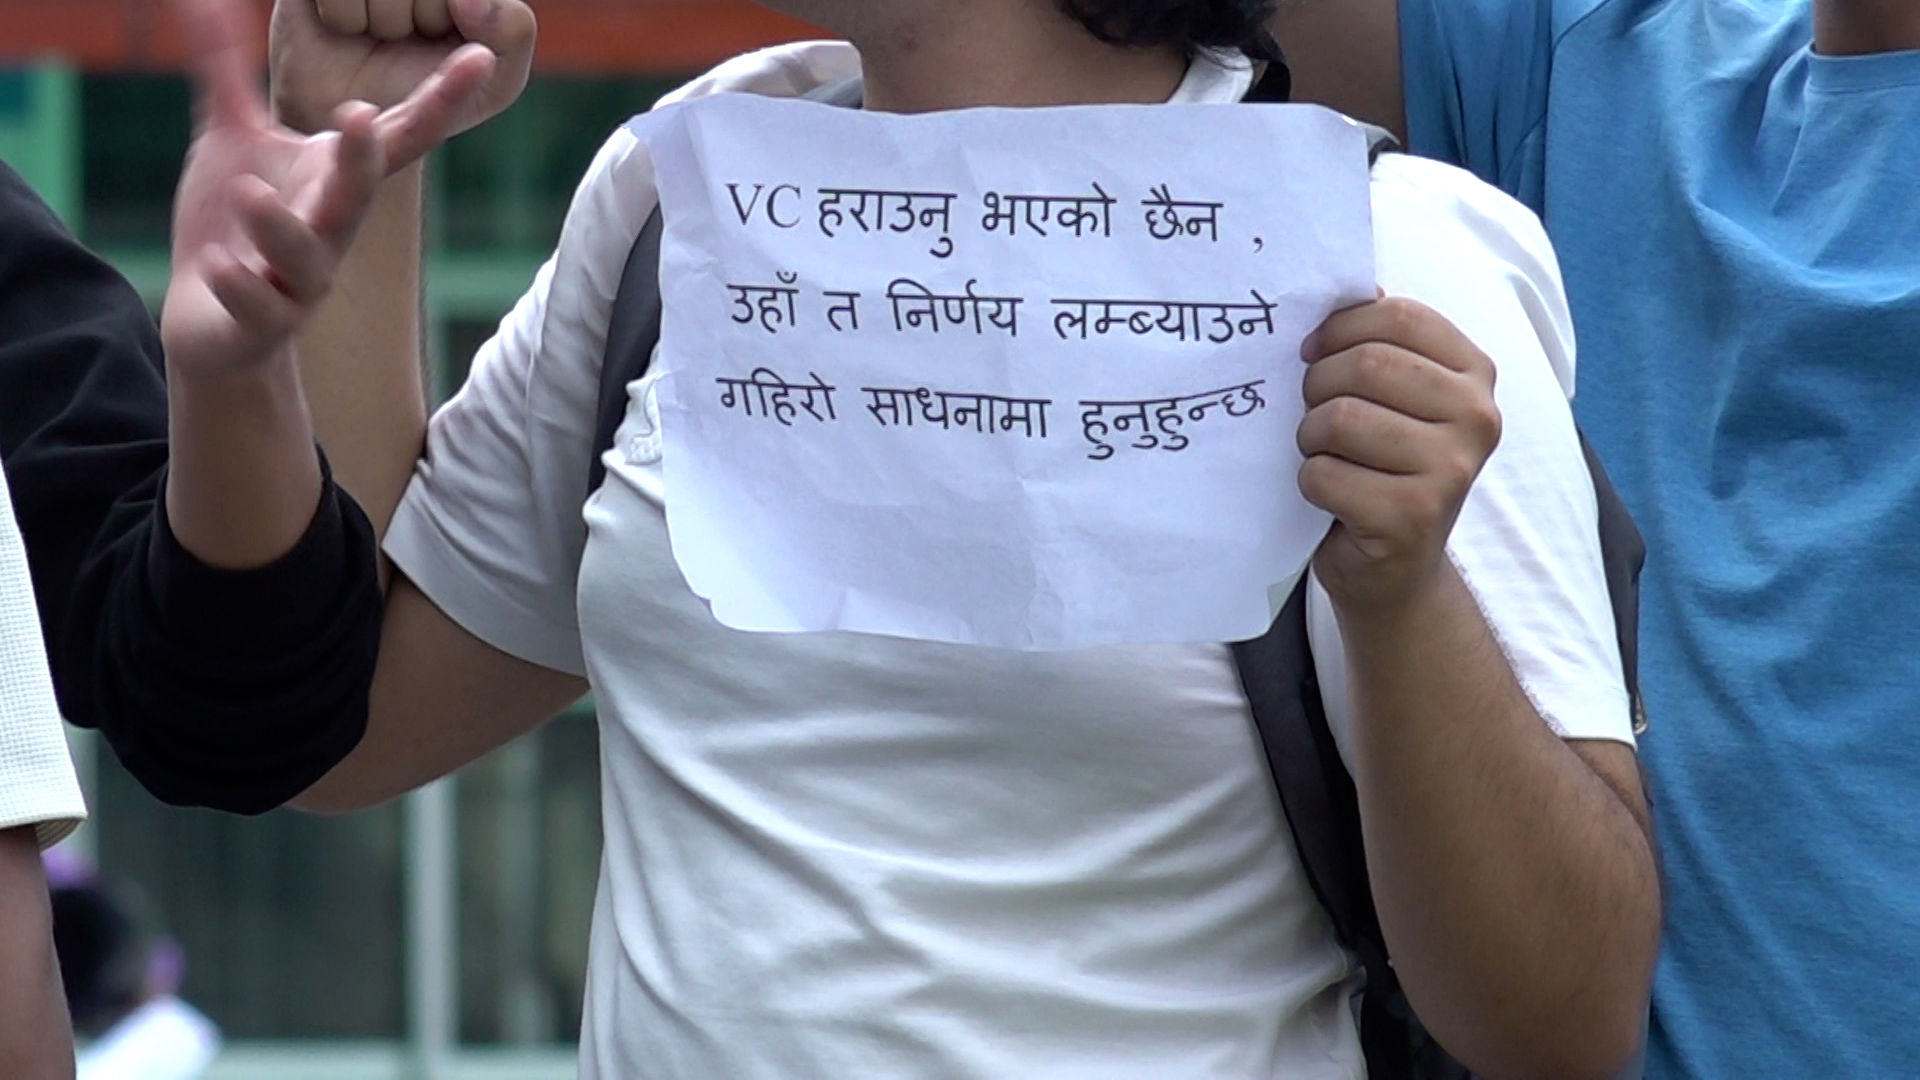 VC हराउनु भएको छैन ,
उहाँ त निर्णय लम्ब्याउने
गहिरो साधनामा हुनुहुन्छ